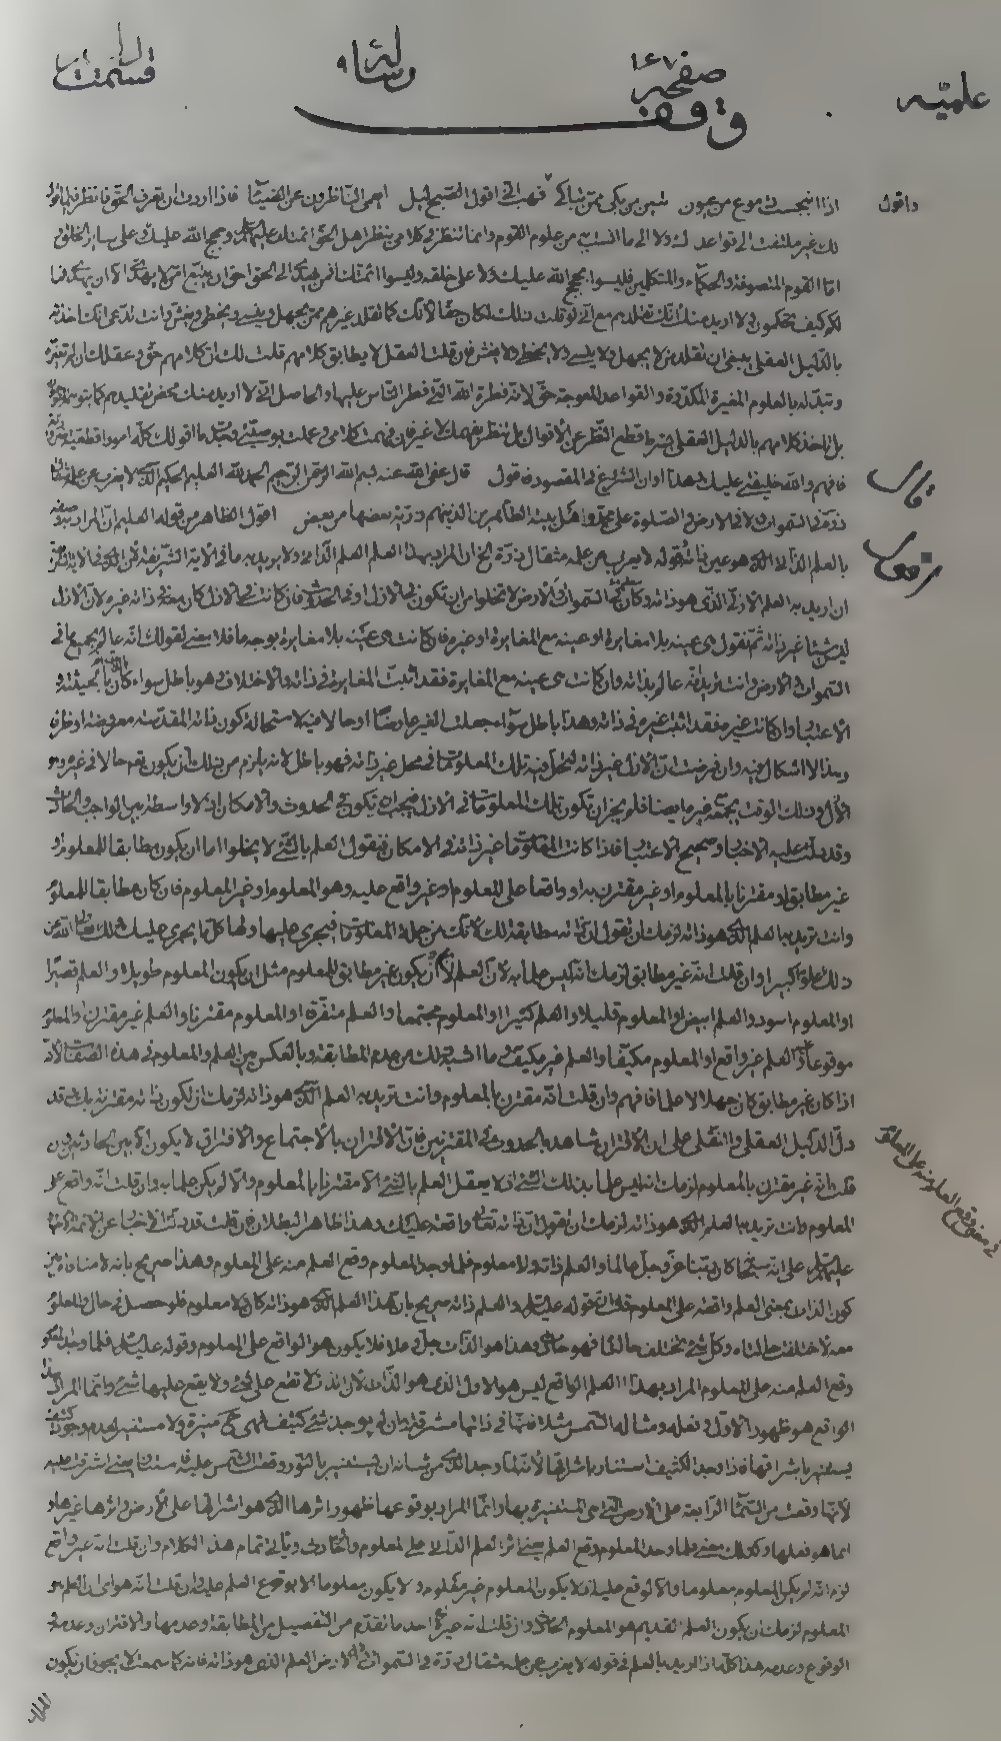 علميّه
صفحه ١٤٧
رساله ٩
قسمت
وقف
واقول
اذا انبجست دموع من عيون تبين من بكى ممن تباكى فهب انى اقول الصبح ليل اعمى الناظرون عن الضياء فاذا اردت ان تعرف الحق فانظر فيما اقول
لك غير ملتفت الى قواعد لك ولا الى ما انست به من علوم القوم وانما تنظر فى كلامى بنظر اهل الحق ائمتك عليهم السلام وحجج الله عليك وعلى ساير الخلق و
اما القوم المتصوفة والحكماء والمتكلمين فليسوا بحجج الله عليك ولا على خلقه وليسوا ائمتك افمن يهدى الى الحق احق ان يتبع امن لا يهدى الا ان يهدى فما
لكم كيف تحكمون ولا اريد منك انك تقلدهم مع انى لو قلت ذلك لكان حقا لانك كما تقلد غيرهم ممن يجهل وينسى ويخطى ويغش وانت تدعى انك اخذته
بالدليل العقلى ينبغى ان تقلد من لا يجهل ولا ينسى ولا يخطى ولا يغش فان قلت العقل لا يطابق كلامهم قلت لك ان كلامهم حق وعقلك ان لم تغيّره
وتبدّله بالعلوم المغيرة المكدرة والقواعد المعوجة حق لانه فطرة الله التى فطر الناس عليها والحاصل انى لا اريد منك محض تقليدهم كما
بل تاخذ كلامهم بالدليل العقلى بشرط قطع النظر عن الاقوال بل تنظر بفهمك لا غير فان فهمت كلامى وعملت بوصيتى وجدت ما اقول لك كله امورا قطعية
فافهم والله خليفتى عليك وهذا اوان الشروع فى المقصود فاقول قال عفى الله عنه بسم الله الرحمن الرحيم الحمد لله العليم الحكيم الذى لا يعزب عن علمه مثقال
ذرة فى السموات ولا فى الارض والصلوة على محمد واهل بيته الطاهرين الذين هم ذرية بعضها من بعض اقول الظاهر من قوله العليم ان المراد به وصفه
بالعلم الذاتى الذى هو عين ذاته وقوله لا يعزب عن علمه مثقال ذرة الخ ان المراد بهذا العلم العلم الذاتى ولا يريد به ما فى الاية الشريفة
ان اريد به العلم الازلى الذى هو ذاته وكان ما فى السموات والارض لا تخلوا من ان تكون فى الازل او فى الحدوث فان كانت فى الازل كان معه فى ذاته غيره لان الازل
ليس شيئا غير ذاته ثم نقول هى عينه بلا مغايرة او عينه مع المغايرة او غيره فان كانت هى عينه بلا مغايرة بوجه ما فلا معنى لقولك انه عالم بجميع ما فى
السموات والارض وانت تريد انه عالم بذاته وان كانت هى عينه مع المغايرة فقد اثبت المغايرة فى ذاته والاختلاف وهو باطل سواء كان بالحيثية و
الاعتبار وان كانت غيره فقد اثبت غيره فى ذاته وهذا باطل سواء جعلت الغير عارضا او حالا فيه لاستحالة كون ذاته المقدسة معروضة او ظرفا
وهذا لا اشكال فيه وان فرضت ان الازل غير ذاته لتحل فيه تلك المعلومات فى محل غير ذاته فهو باطل لانه يلزم من ذلك ان يكون تعالى حالا فى غيره وهو
الازل وذلك الوقت يجمعه غيره ايضا فلم يجز ان تكون تلك المعلومات فى الازل فيجب ان تكون فى الحدوث والامكان اذ لا واسطة بين الواجب والحادث
وقد دلت عليه الاخبار وصحيح الاعتبار فاذا كانت المعلومات غير ذاته فى الامكان فنقول العلم بالشئ لا يخلوا اما ان يكون مطابقا للمعلوم او
غير مطابق او مقترنا بالمعلوم او غير مقترن به او واقعا على المعلوم او غير واقع عليه وهو المعلوم او غير المعلوم فان كان مطابقا للمعلوم
وانت تريد به العلم الذى هو ذاته لزمك ان تقول ان ذاته مطابقة لك لانك من جملة المعلومات فيجرى عليها ولها كل ما يجرى عليك ولك تعالى الله عن
ذلك علوا كبيرا وان قلت انه غير مطابق لزمك انه ليس علما به لان العلم لا يكون غير مطابق للمعلوم مثل ان يكون المعلوم طويلا والعلم قصيرا
او المعلوم اسود والعلم ابيض او المعلوم قليلا والعلم كثيرا او المعلوم مجتمعا والعلم متفرقا او المعلوم مقترنا والعلم غير مقترن والمعلوم
موقوعا والعلم غير واقع او المعلوم مكيفا والعلم غير مكيف وما اشبه ذلك من عدم المطابقة وبالعكس بين العلم والمعلوم فى هذه الصفات لانه
اذا كان غير مطابق كان جهلا لا علما فافهم وان قلت انه مقترن بالمعلوم وانت تريد به العلم الذى هو ذاته لزمك ان تكون ذاته مقترنة بك وقد
دل الدليل العقلى والنقلى على ان الاقتران شاهد بالحدوث فى المقترنين فان الاقتران بالاجتماع والافتراق لا يكون الا بين الحادثين وان
قلت انه غير مقترن بالمعلوم لزمك انه ليس علما بذلك الشئ اذ لا يعقل العلم بالشئ الا مقترنا بالمعلوم والا لم يكن علما به وان قلت انه واقع على
المعلوم وانت تريد به العلم الذى هو ذاته لزمك ان تقول ان ذاته تعالى واقعة عليك وهذا ظاهر البطلان فان قلت قد دلت الاخبار عن الائمة الاطهار
عليهم السلام على انه سبحانه كان ربنا عز وجل عالما والعلم ذاته ولا معلوم فلما وجد المعلوم وقع العلم منه على المعلوم وهذا صريح بانه لا منافاة بين
كون الذات بمعنى العلم واقعة على المعلوم قلت ان قوله عليه السلام والعلم ذاته صريح بان هذا العلم الذى هو ذاته كان ولا معلوم فلو حصل فى حال والمعلوم
معه لاختلفت حالتاه وكل شئ تختلف حالتاه فهو حادث وهذا هو الذات جل وعلا فلا يكون هو الواقع على المعلوم وقوله عليه السلام فلما وجد المعلوم
وقع العلم منه على المعلوم المراد بهذا العلم الواقع ليس هو الاول الذى هو الذات لان الذات لا تقع على شئ ولا يقع عليها شئ وانما المراد بهذا
الواقع هو ظهور الاول فى فعله ومثاله الشمس مثلا فانها فى ذاتها مشرقة وان لم يوجد شئ كثيف فهى منيرة ولا مستنير لعدم وجود كثيف
يستنير باشراقها فاذا وجد الكثيف استنار باشراقها لانه لما وجد الذى من شانه ان يستنير بالنور وقعت الشمس عليه فاستنار يعنى اشرقت عليه
لا انها وقعت من السماء الرابعة على الارض التى هى المستنيرة بها وانما المراد بوقوعها ظهور اثرها الذى هو اشراقها على الارض واثرها غيرها و
انما هو فعلها وكذلك معنى فلما وجد المعلوم وقع العلم يعنى اثر العلم الذاتى على المعلوم والحادث وياتى تمام هذا الكلام وان قلت انه غير واقع
لزم انه لم يكن المعلوم معلوما والا لوقع عليه اذ لا يكون المعلوم غير معلوم ولا يكون معلوما الا بوقوع العلم عليه وان قلت انه هو اى ان العلم هو
المعلوم لزمك ان يكون العلم القديم هو المعلوم الحادث وان قلت انه غيره جرى احد ما تقدم من التفصيل من المطابقة وعدمها والاقتران وعدمه و
الوقوع وعدمه هذا كله اذا اريد بالعلم فى قوله لا يعزب عن علمه مثقال ذرة فى السموات والارض العلم الذى هو ذاته فانه كما سمعت لا يجوز فان يكون
قال
اقول
فى معنى وقوع العلم منه على المعلوم
المراد